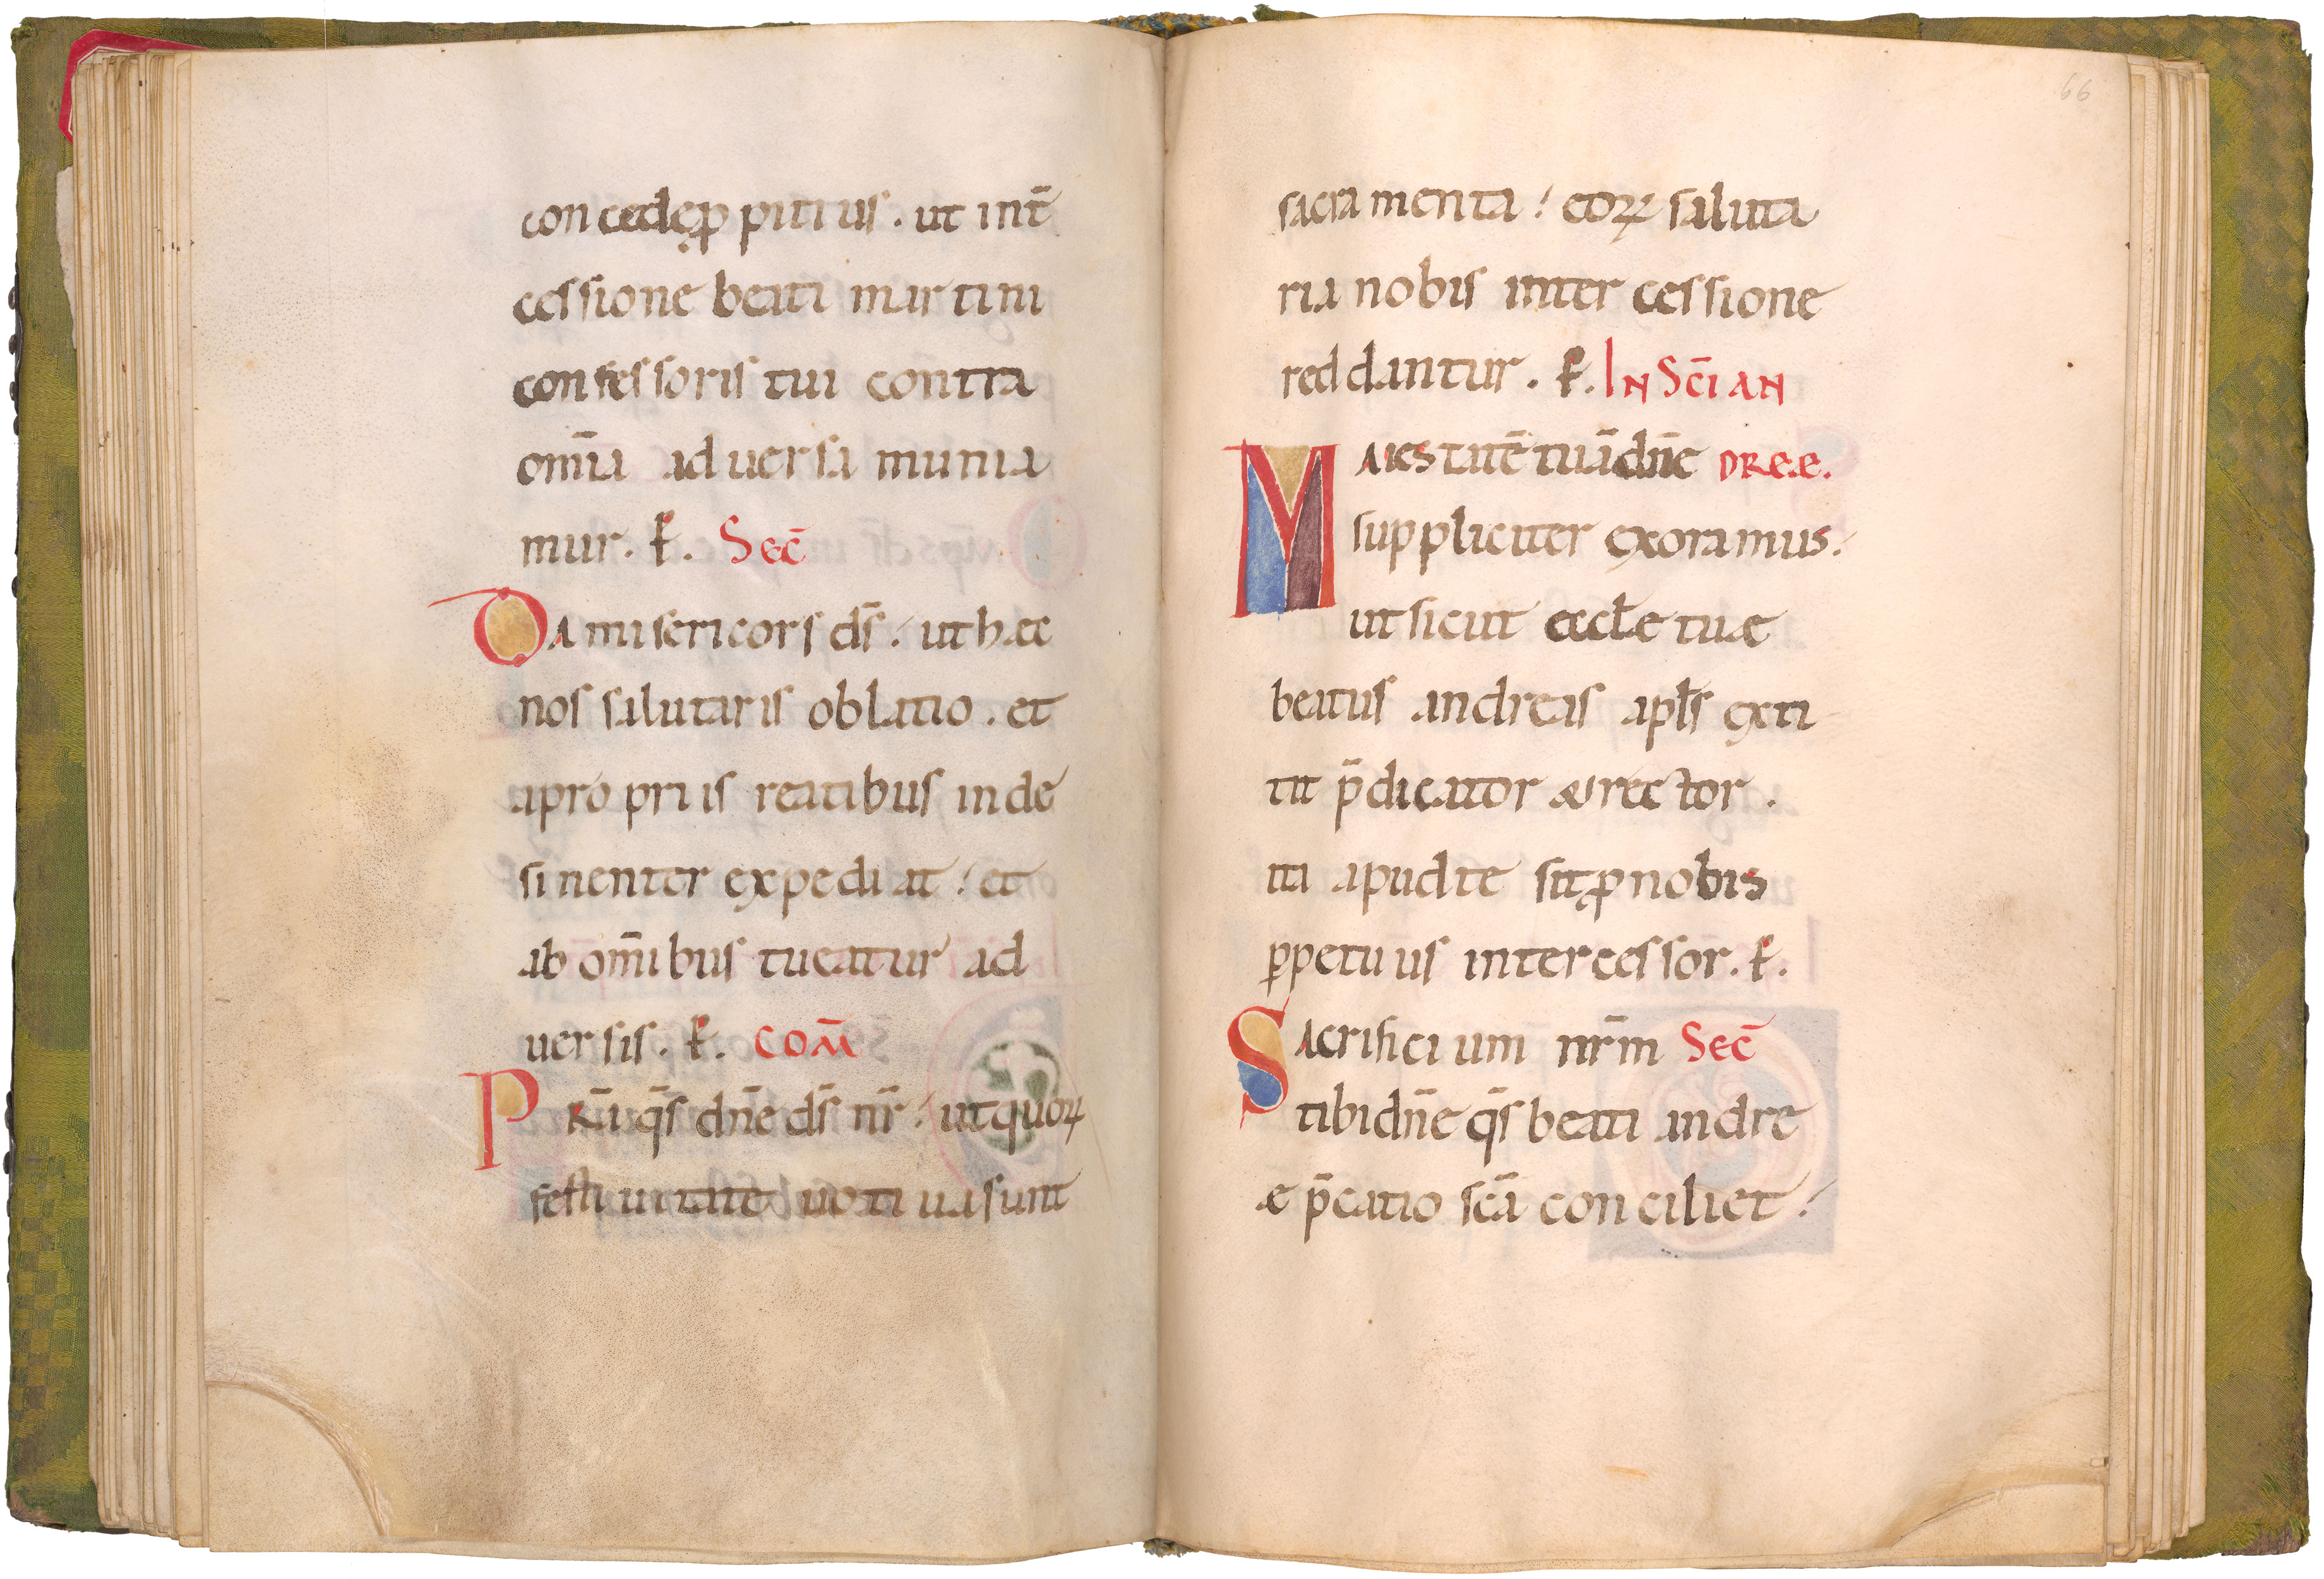 concede ꝓpitius. ut int̄
cessione beati martini
confessoris tui contra
om̄ia aduersa munia
mur. P̶. Sec̄
Da misericors ds̄! ut haec
nos salutaris oblatio. et
a propriis reatibus inde
sinenter expediat! et
ab om̄ibus tueatur ad
uersis. P̶. COM̄
PR̄a q̄s dn̄e ds̄ nr̄! ut quoꝝ
festiuitate uotiua sunt
66
sacramenta! eoꝝ saluta
ria nobis intercessione
reddantur. P̶. IN SC̄I AN
Maiestatē tuā dn̄e DREAE.
suppliciter exoramus.
ut sicut eccłe tuae
beatus andreas apłs exti
tit p̄dicator & rector.
ita apud te sit ꝓ nobis
ꝑpetuus intercessor. P̶.
Sacrificium nr̄m Sec̄
tibi dn̄e q̄s beati andre
ae p̄catio sc̄a conciliet!